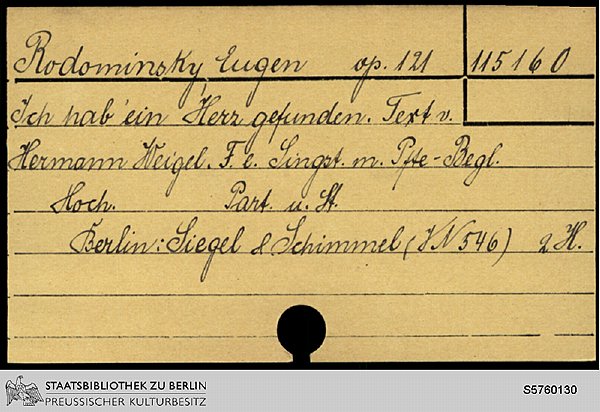 Rodominsky Eugen op. 121 115160
Ich hab' ein Herz gefunden. Text v.
Hermann Weigel. F. e. Singst. m. Pfte-Begl.
Hoch. Part. u. St.
Berlin: Siegel & Schimmel (VN 546) 2 H.
STAATSBIBLIOTHEK ZU BERLIN
PREUSSISCHER KULTURBESITZ
S5760130